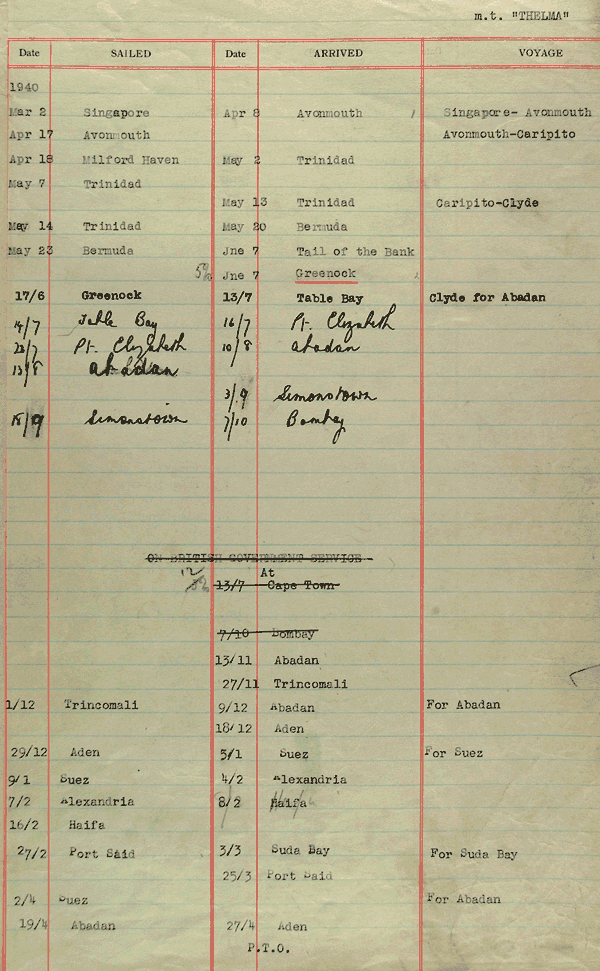 m.t. "THELMA"
Date SAILED Date ARRIVED VOYAGE
1940
Mar 2 Singapore Apr 8 Avonmouth Singapore- Avonmouth
Apr 17 Avonmouth Avonmouth-Caripito
Apr 18 Milford Haven May 2 Trinidad
May 7 Trinidad
May 13 Trinidad Caripito-Clyde
May 14 Trinidad May 20 Bermuda
May 23 Bermuda Jne 7 Tail of the Bank
Jne 7 Greenock
17/6 Greenock 13/7 Table Bay Clyde for Abadan
14/7 Table Bay 16/7 Pt. Elizabeth
22/7 Pt. Elizabeth 10/8 Abadan
13/8 Abadan
3/9 Simonstown
18/9 Simonstown 7/10 Bombay
ON BRITISH GOVERNMENT SERVICE
12 At
13/7 Cape Town
7/10 Bombay
13/11 Abadan
27/11 Trincomali
1/12 Trincomali 9/12 Abadan For Abadan
18/12 Aden
29/12 Aden 5/1 Suez For Suez
9/1 Suez 4/2 Alexandria
7/2 Alexandria 8/2 Haifa
16/2 Haifa
27/2 Port Said 3/3 Suda Bay For Suda Bay
25/3 Port Said
2/4 Suez For Abadan
19/4 Abadan 27/4 Aden
P.T.O.